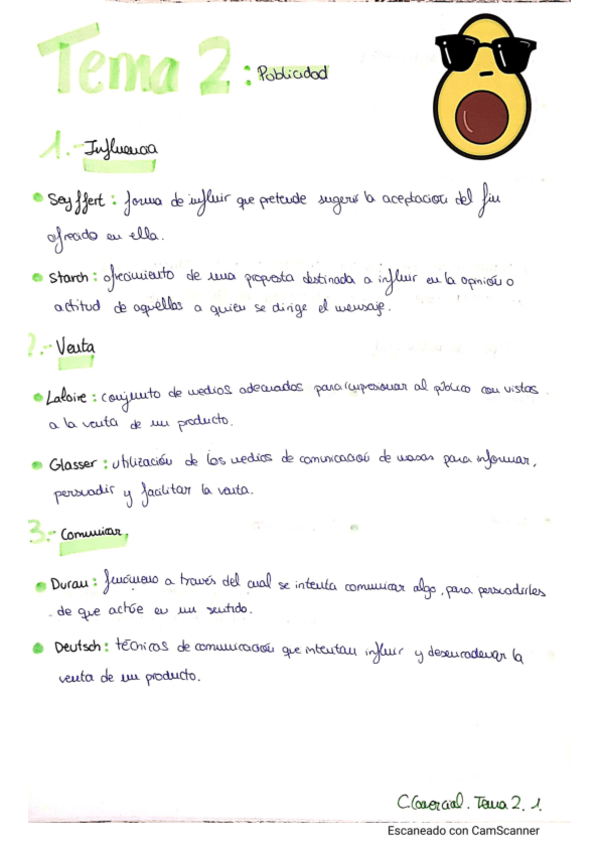 Tema 2: Publicidad
1.- Influencia
Seyffert: forma de influir que pretende sugerir la aceptacion del fin
ofrecido en ella.
Starch: ofrecimiento de una propuesta destinada a influir en la opinión o
actitud de aquellas a quien se dirige el mensaje.
2.- Venta
Laloire: conjunto de medios adecuados para impresionar al público con vistas
a la venta de un producto.
Glasser: utilización de los medios de comunicación de masas para informar,
persuadir y facilitar la venta.
3.- Comunicar.
Duran: fenómeno a través del cual se intenta comunicar algo, para persuadirles
de que actúe en un sentido.
Deutsch: técnicas de comunicación que intentan influir y desencadenar la
venta de un producto.
C.Comercial. Tema 2. 1.
Escaneado con CamScanner